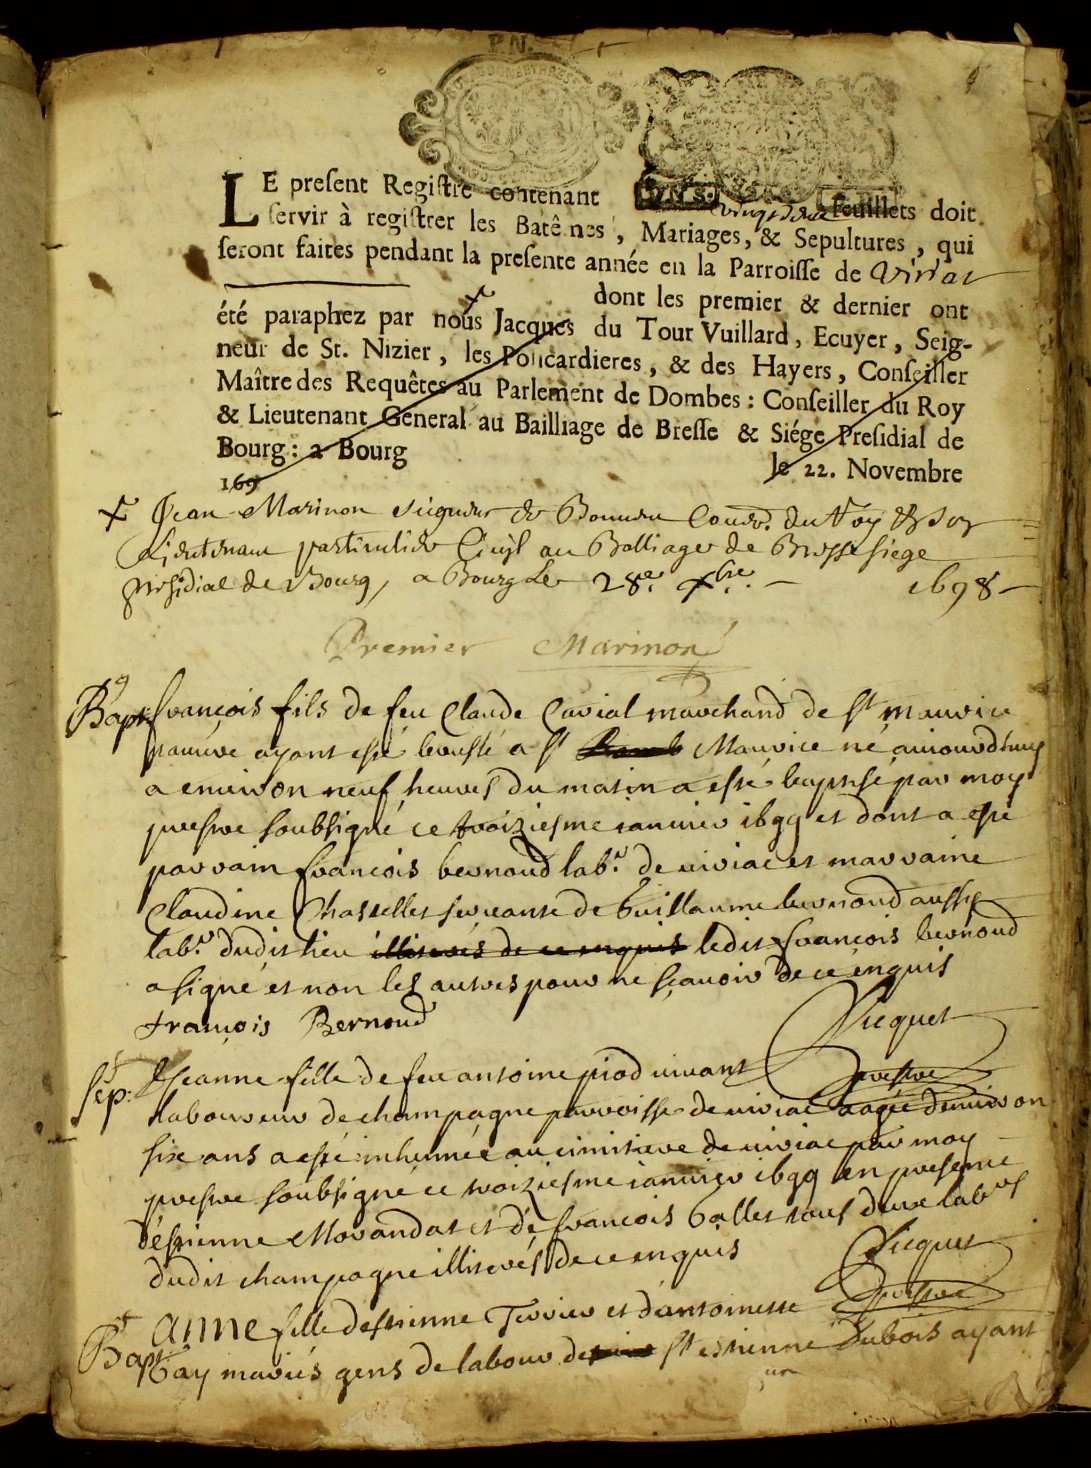 P.N.
LE present Registre contenant vingt deux feuillets doit
servir à registrer les Batêmes, Mariages, & Sepultures, qui
seront faites pendant la presente année en la Parroisse de Viriat
dont les premier & dernier ont
été paraphez par nous Jacques du Tour Vuillard, Ecuyer, Seig-
neur de St. Nizier, les Policardieres, & des Hayers, Conseiller
Maître des Requêtes au Parlement de Dombes: Conseiller du Roy
& Lieutenant General au Bailliage de Bresse & Siége Presidial de
Bourg: a Bourg le 22. Novembre
169
Jean Marinon seigneur de Conser. du Roy
Lieutenant particulier Civil au Balliage de Bresse siege
presidial de Bourg, a Bourg le 28e. xbre. 1698
Premier Marinon
Bapt françois fils de feu Claude Cavial marchand de st mauvice
ayant esté a st Mauvice né aujourd'huy
a environ neuf heures du matin a esté baptisé par moy
prestre soubsigné ce troiziesme janvier 1699 et dont a esté
parrain françois bernoud labr. de viriac et marraine
Claudine Chastellet servante de Guillaume bernoud aussy
labr. dudit lieu illiterés de ce enquis ledit françois bernoud
a signé et non les autres pour ne sçavoir de ce enquis
françois Bernoud Picquet
prestre
Sep: Jeanne fille de feu antoine piod vivant
laboureur de champagne parroisse de viriac aagée denviron
six ans a esté inhumée au cimitiere de viriac par moy
prestre soubsigné ce troiziesme janvier 1699 en presence
d'estienne Morandat et de françois Gallet tous deux labrs
dudit champagne illiterés de ce enquis Picquet
prestre
Bapt anne fille d'estienne Tervier et d'antoinette
Gay mariés gens de labour de st estienne dubois ayant